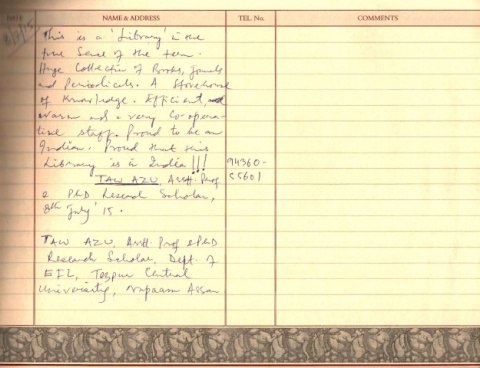 DATE NAME & ADDRESS TEL. No. COMMENTS
8/7/15
This is a 'Library' in the
true Sense of the term.
Huge Collection of Books, Journals
and Periodicals. A Storehouse
of Knowledge. Efficient, and
warm and a very Co-opera-
tive staff. Proud to be an
Indian. Proud that this
Library is in India!!!
94360-
55601
TAW AZU, Asstt. Prof
& PhD Research Scholar,
8th July '15.
TAW AZU, Asstt. Prof & PhD
Research Scholar, Dept. of
EFL, Tezpur Central
University, Napaam Assam